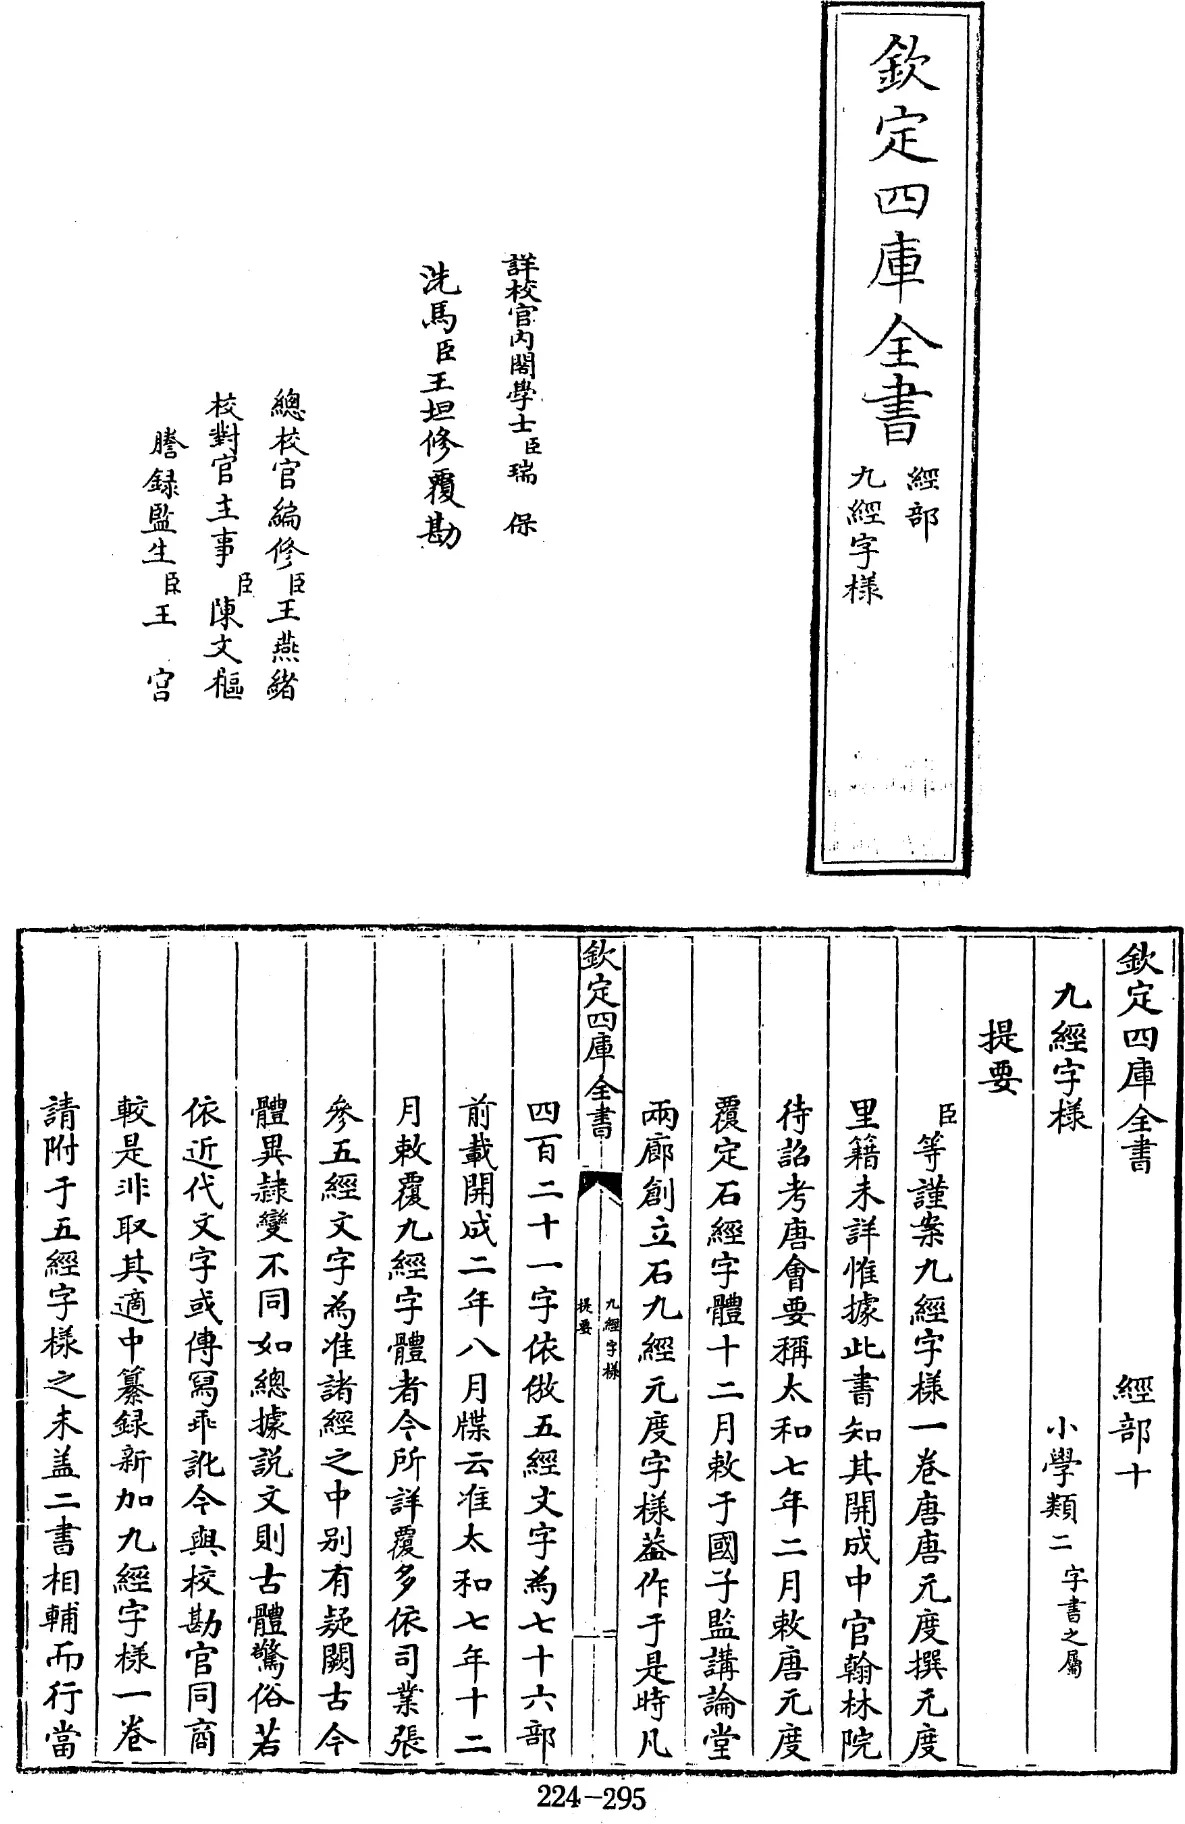 欽定四庫全書
經部
九經字様
詳校官内閣學士臣瑞保
洗馬臣王坦修覆勘
總校官編修臣王燕緒
校對官主事臣陳文樞
謄録監生臣王宫
欽定四庫全書 經部十
九經字様 小學類二字書之屬
提要
臣等謹案九經字様一卷唐唐元度撰元度
里籍未詳惟據此書知其開成中官翰林院
待詔考唐會要稱太和七年二月敕唐元度
覆定石經字體十二月敕于國子監講論堂
兩廊創立石九經元度字様葢作于是時凡
欽定四庫全書
九經字様
提要
二
四百二十一字依倣五經文字為七十六部
前載開成二年八月牒云准太和七年十二
月敕覆九經字體者今所詳覆多依司業張
參五經文字為准諸經之中别有疑闕古今
體異隷變不同如總據説文則古體驚俗若
依近代文字或傳冩乖訛今與校勘官同商
較是非取其適中纂録新加九經字様一卷
請附于五經字様之末盖二書相輔而行當
224-295